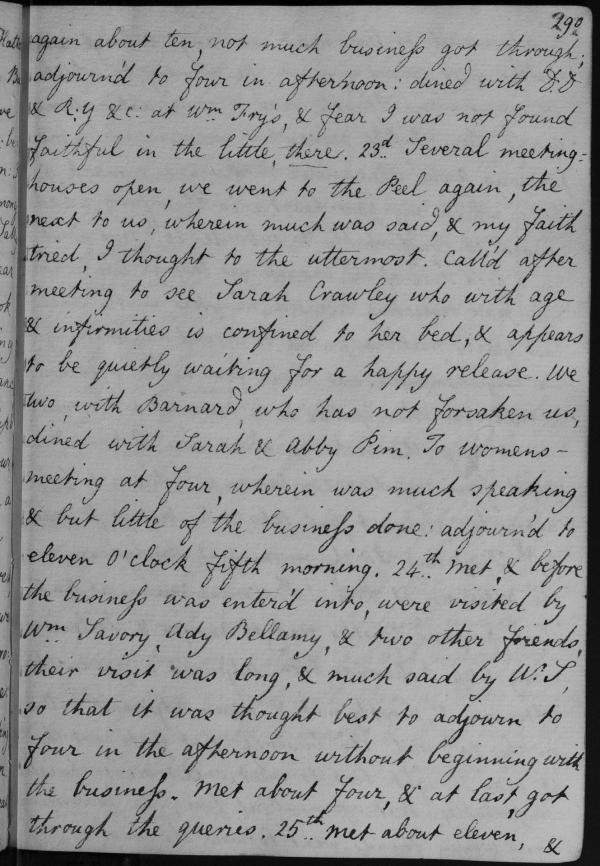 290
again about ten, not much businefs got through;
adjourn'd to four in afternoon: dined with D:D
& R:Y &c: at Wm Fry's, & fear I was not found
faithful in the little, there. 23d Several meeting=
houses open, we went to the Peel again, the
next to us, wherein much was said, & my faith
tried, I thought to the uttermost. Call'd after
meeting to see Sarah Crawley who with age
& infirmities is confined to her bed, & appears
to be quietly waiting for a happy release. We
two, with Barnard, who has not forsaken us,
dined with Sarah & Abby Pim. To womens-
meeting at four, wherein was much speaking
& but little of the businefs done: adjourn'd to
eleven O'clock fifth morning. 24th Met, & before
the businefs was enter'd into, were visited by
Wm Savory, Ady Bellamy, & two other friends,
their visit was long, & much said by W:S,
so that it was thought best to adjourn to
four in the afternoon without beginning with
the businefs. Met about four, & at last, got
through the queries. 25th Met about eleven, &